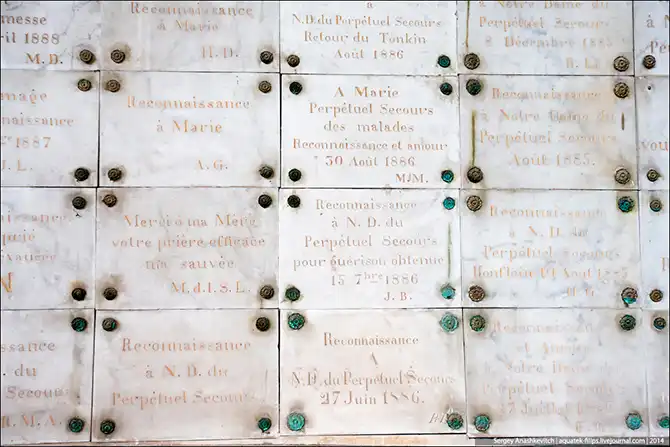 messe
ril 1888
M.D.
Reconnaissance
à Marie
H.D.
N.D. du Perpétuel Secours
Retour du Tonkin
Août 1886
à Notre Dame du
Perpétuel Secours
8 Décembre 1885
mage
naissance
1887
J.L.
Reconnaissance
à Marie
A.G.
A Marie
Perpétuel Secours
des malades
Reconnaissance et amour
30 Août 1886
MJM.
Reconnaissance
à Notre Dame du
Perpétuel Secours
Août 1885.
issance
Merci o ma Mère
votre prière efficace
m'a sauvée
M.d.I.S.L.
Reconnaissance
à N. D. du
Perpétuel Secours
pour guérison obtenue
15 7bre 1886
J.B.
Reconnaissance
à N. D. du
Perpétuel Secours
Honfleur 19 Août 1885
ssance
. du
Secours
R.M.A.
Reconnaissance
à N. D. du
Perpétuel Secours
Reconnaissance
A
N.D. du Perpétuel Secours
27 Juin 1886.
Reconnaissance
à Notre Dame du
Perpétuel Secours
27 Juillet
Sergey Anashkevitch | aquatek-filips.livejournal.com | 2014